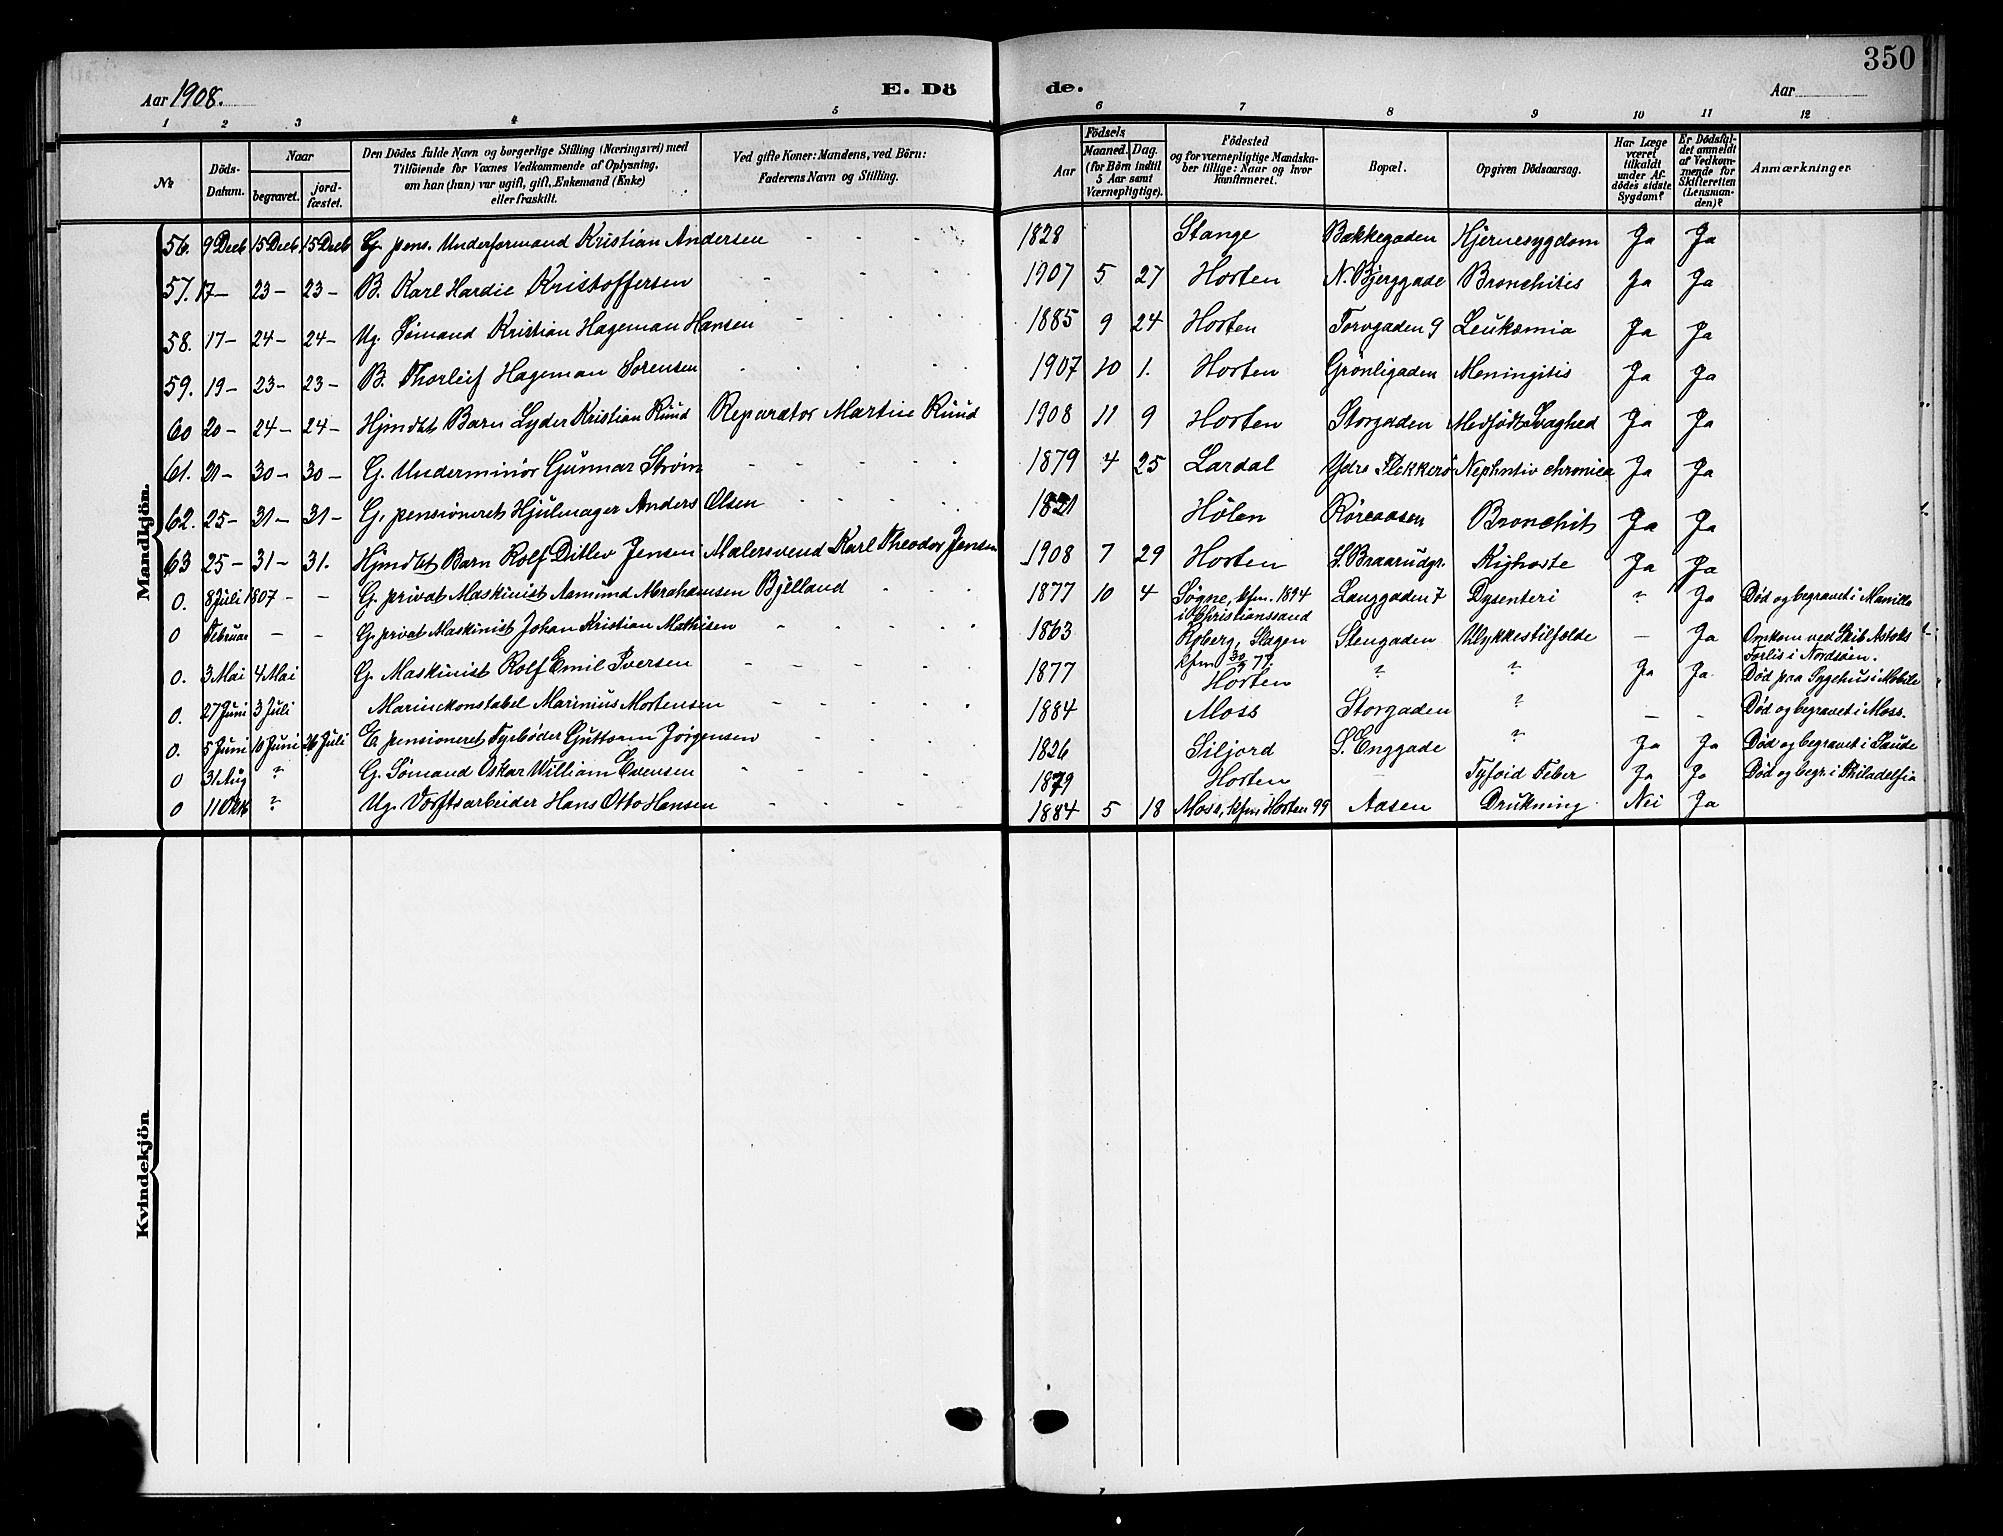 350
Aar 1908. E. Dö de. Aar
1 2 3 4 5 6 7 8 9 10 11 12
№ Döds-Datum. Naar begravet. jord-fæstet. Den Dödes fulde Navn og borgerlige Stilling (Næringsvei) med Tilföiende for Voxnes Vedkommende af Oplysning, om han (hun) var ugift, gift, Enkemand (Enke) eller fraskilt. Ved gifte Koner: Mandens, ved Börn: Faderens Navn og Stilling. Födsels Aar Maaned. Dag. (for Börn indtil 5 Aar samt Værnepligtige). Födested og for værnepligtige Mandskaber tillige: Naar og hvor konfirmeret. Bopæl. Opgiven Dödsaarsag. Har Læge været tilkaldt under Afdödes sidste Sygdom? Er Dödsfaldet anmeldt af Vedkommende for Skifteretten (Lensmanden)? Anmærkninger
Mandkjön.
56. 9 Decb 15 Decb 15 Decb G. pens. Underformand Kristian Andersen - - - - 1828 Stange Bækkegaden Hjernesygdom Ja Ja
57. 17- 23- 23- B. Karl Hardie Kristoffersen - - - - 1907 5 27 Horten N. Bjerggade Bronchitis Ja Ja
58. 17- 24- 24- Ug. Sømand Kristian Hageman Hansen - - - - 1885 9 24 Horten Torvgaden 9 Leukæmia Ja Ja
59. 19- 23- 23- B. Thorleif Hageman Sørensen - - - - 1907 10 1. Horten Grønligaden Meningitis Ja Ja
60 20- 24- 24- Hjmdbt Barn Lyder Kristian Ruud Reparatør Martin Ruud 1908 11 9 Horten Storgaden Medfødt Svaghed Ja Ja
61. 21- 30- 30- G. Underminør Gunnar Strøm - - - - 1879 4 25 Lardal Ydre Flekkerø Ja Ja
62. 25- 31- 31- G. pensioneret Hjulmager Anders Olsen - - - 1821 Hølen Røreaasen Bronchit Ja Ja
63 25- 31- 31. Hjmdbt Barn Rolf Ditlev Jensen Malersvend Karl Theodor Jensen 1908 7 29 Horten S. Braarudgr. Kighoste Ja Ja
0. 8 Juli 1807 - - G. privat Maskinist Aamund Abrahamsen Bjelland - - - 1877 10 4 Søgne, kfm. 1894 i Christianssand Langgaden 7 Dysenteri ? Ja Død og begravet i Manilla
0 Februar - - G. privat Maskinist Johan Kristian Mathisen - - - - 1863 Roberg, Slagen Stengaden Ulykkestilfælde - Ja Omkom ved Skib Forlis i Nordsøen.
0. 3 Mai 4 Mai G. Maskinist Rolf Emil Iversen - - - - 1877 kfm 30/9 77. Horten ? ? Ja Ja Død paa Sygehus i Mobile
0. 27 Juni 3 Juli Marinekonstabel Marinius Mortensen - - - - 1884 Moss Storgaden ? - - Død og begravet i Moss.
0. 5 Juni 10 Juni 26 Juli E. pensioneret Fyrbøder Guttorm Jørgensen - - - 1826 Siljord S. Enggade ? Ja Ja Død og begravet i Saude
0 31 Aug ? G. Sømand Oskar William Evensen - - - - 1879 Horten - Tyfoid Feber Ja Ja Død og begr. i Philadelfia
0 11 Oktb ? Ug. Værftsarbeider Hans Otto Hansen - - - - 1884 5 18 Moss, kfm Horten 99 Aasen Drukning Nei Ja
Kvindekjön